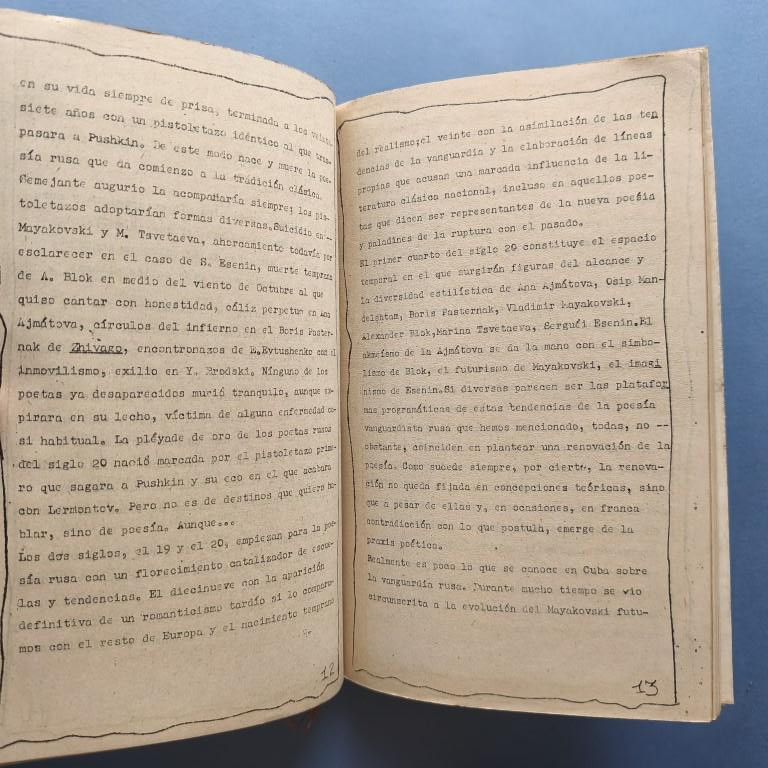 en su vida siempre de prisa, terminada a los veinti-
siete años con un pistoletazo idéntico al que tras-
pasara a Pushkin. De este modo nace y muere la poe-
sía rusa que da comienzo a la tradición clásica.
Semejante augurio la acompañaría siempre; los pis-
toletazos adoptarían formas diversas.Suicidio en --
Mayakovski y M. Tsvetaeva, ahorcamiento todavía por
esclarecer en el caso de S. Esenin, muerte temprana
de A. Blok en medio del viento de Octubre al que
quiso cantar con honestidad, cáliz perpetuo en Ana
Ajmátova, círculos del infierno en el Boris Paster-
nak de Zhivago, encontronazos de E.Evtushenko con el
inmovilismo, exilio en Y. Brodski. Ninguno de los
poetas ya desaparecidos murió tranquilo, aunque ex-
pirara en su lecho, víctima de alguna enfermedad ca-
si habitual. La pléyade de oro de los poetas rusos
del siglo 20 nació marcada por el pistoletazo prime-
ro que segara a Pushkin y su eco en el que acabara
con Lermontov. Pero no es de destinos que quiero ha-
blar, sino de poesía. Aunque...
Los dos siglos, el 19 y el 20, empiezan para la poe-
sía rusa con un florecimiento catalizador de escue-
las y tendencias. El diecinueve con la aparición
definitiva de un romanticismo tardío si lo compara-
mos con el resto de Europa y el nacimiento temprano
12
del realismo;el veinte con la asimilación de las ten
dencias de la vanguardia y la elaboración de líneas
propias que acusan una marcada influencia de la li-
teratura clásica nacional, incluso en aquellos poe-
tas que dicen ser representantes de la nueva poesía
y paladines de la ruptura con el pasado.
El primer cuarto del siglo 20 constituye el espacio
temporal en el que surgirán figuras del alcance y
la diversidad estilística de Ana Ajmátova, Osip Man-
delshtam, Boris Pasternak, Vladimir Mayakovski,
Alexander Blok,Marina Tsvetaeva, Serguéi Esenin.El
akmeísmo de la Ajmátova se da la mano con el simbo-
lismo de Blok, el futurismo de Mayakovski, el imagi
nismo de Esenin.Si diversas parecen ser las platafor
mas programáticas de estas tendencias de la poesía
vanguardista rusa que hemos mencionado, todas, no --
obstante, coinciden en plantear una renovación de la
poesía. Como sucede siempre, por cierto, la renova-
ción no queda fijada en concepciones teóricas, sino
que a pesar de ellas y, en ocasiones, en franca
contradicción con lo que postula, emerge de la
praxis poética.
Realmente es poco lo que se conoce en Cuba sobre
la vanguardia rusa. Durante mucho tiempo se vio
circunscrita a la evolución del Mayakovski futu-
13